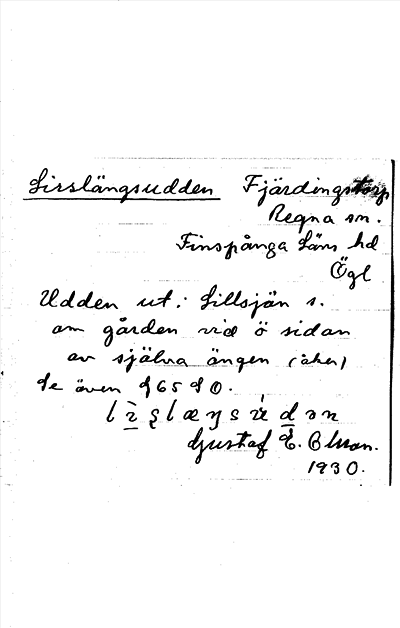 Lisslängsudden Fjärdingstorp
Regna sn.
Finspånga läns hd
Ögl
Udden ut i Lillsjön s.
om gården vid ö sidan
av själva ängen (åker)
Se även
Gustaf E. Olsson.
1930.